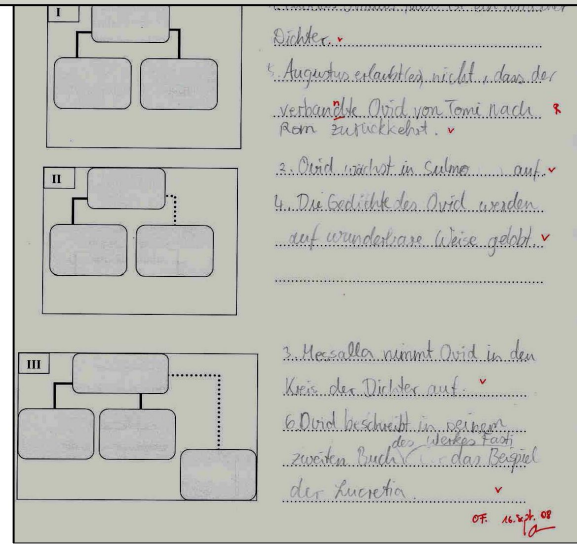 I
Dichter.
5. Augustus erlaubt(e) nicht, dass der
verbandte Ovid von Tomi nach
n
Rom zurückkehrt.
II
2. Ovid wächst in Sulmo auf.
4. Die Gedichte des Ovid werden
auf wunderbare Weise gelobt.
III
3. Messalla nimmt Ovid in den
Kreis der Dichter auf.
6. Ovid beschreibt in seinem
des Werkes Fasti
zweiten Buch das Beispiel
der Lucretia.
16. Sept. 08